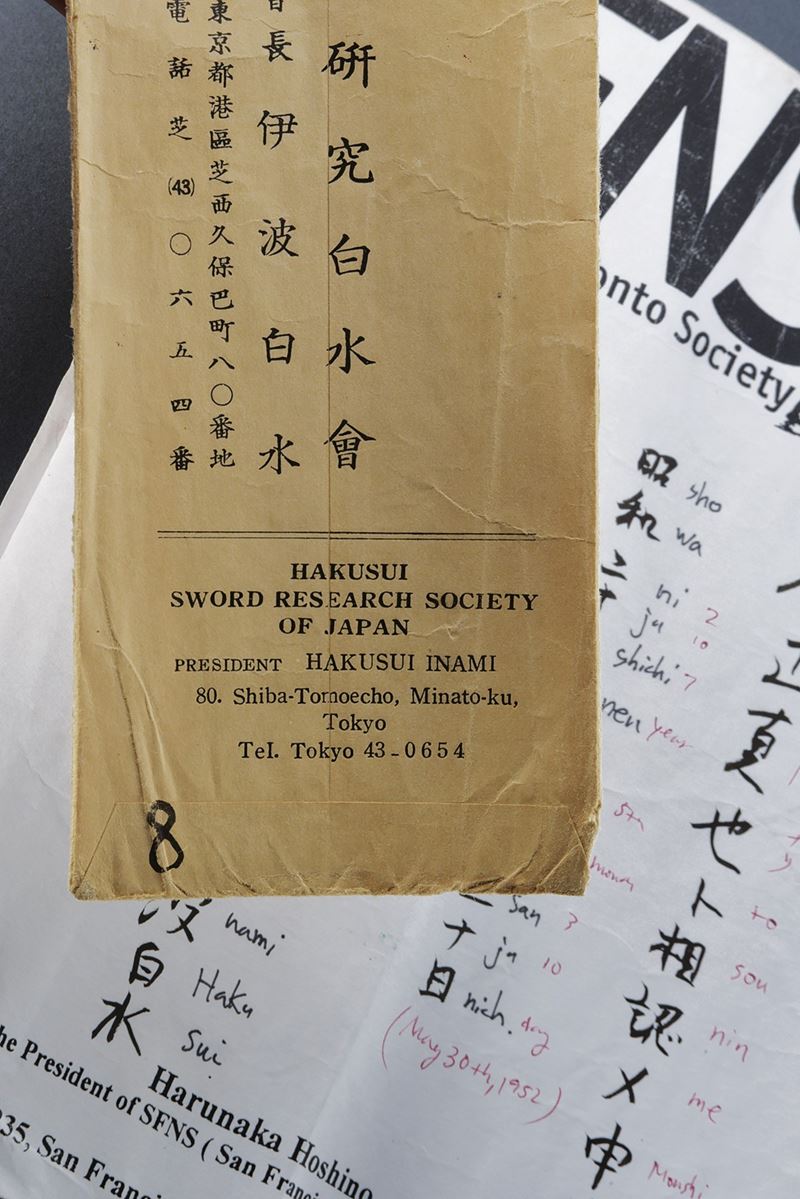 研究白水會
長伊波白水
東京都港區芝西久保巴町八〇番地
電話芝(43)〇六五四番
HAKUSUI
SWORD RESEARCH SOCIETY
OF JAPAN
PRESIDENT HAKUSUI INAMI
80. Shiba-Tomoecho, Minato-ku,
Tokyo
Tel. Tokyo 43-0654
8
NS
Society
正真也ト相認メ申
to
sou
nin
me
昭 sho
和 wa
ni 2
ju 10
shichi 7
nen year
5th
month
san 3
十 ju 10
日 nich. day
(May 30th, 1952)
波 nami
白 Haku
水 Sui
Harunaka Hoshino
the President of SFNS ( San Francis
235, San Franci